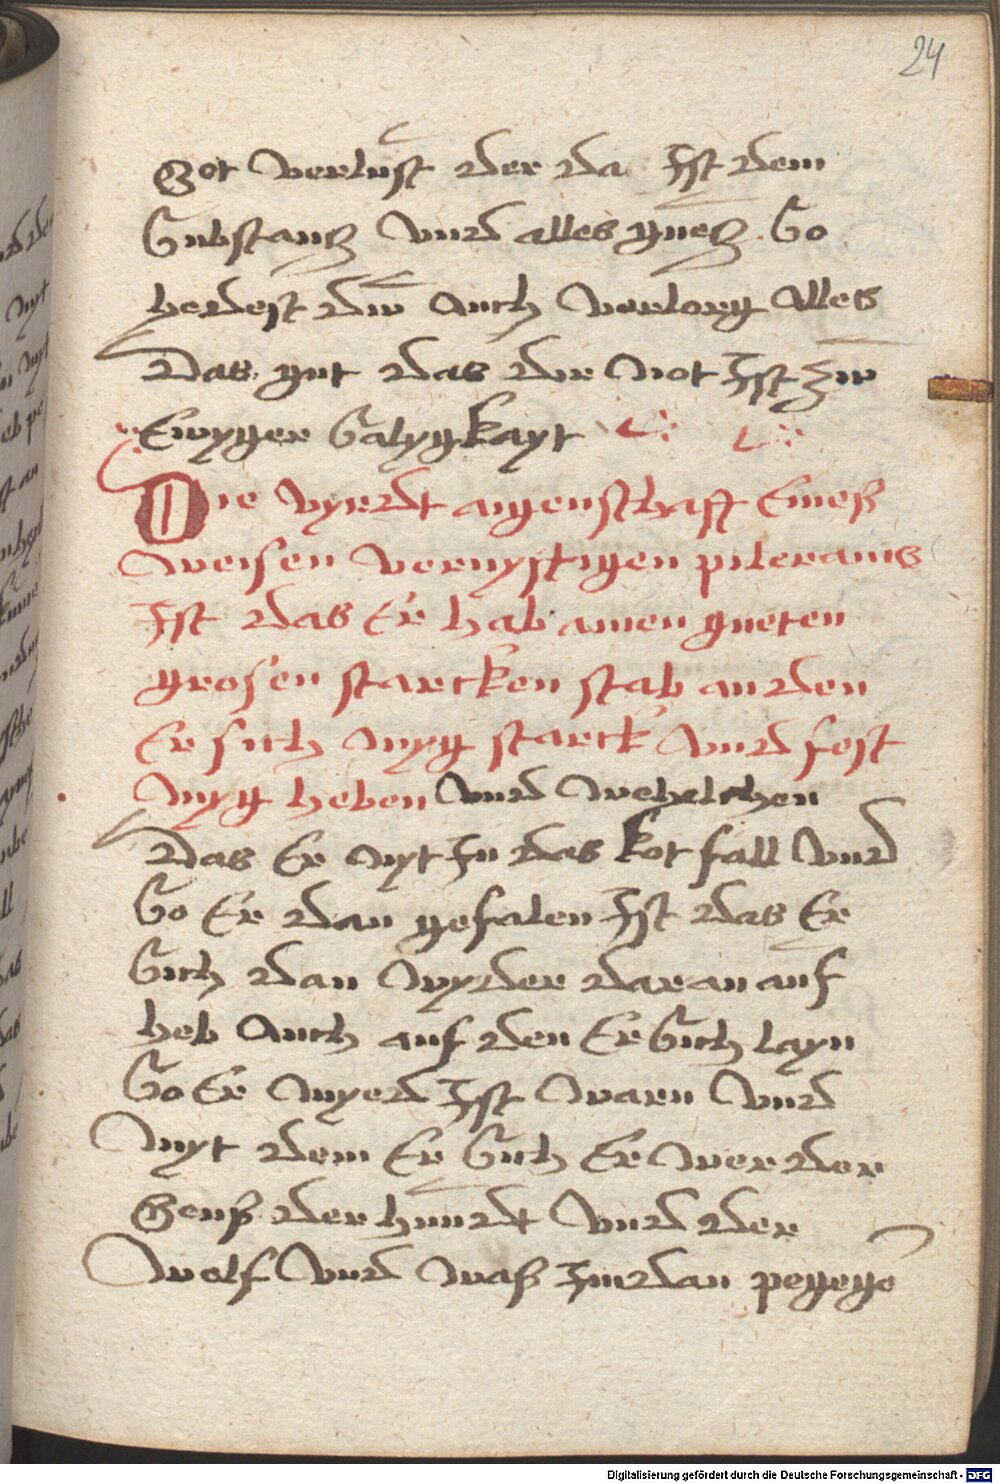 24
Got verlust der da Ist dem
Substantz vnnd alles guetz. So
hedeist dw auch verlorn alles
Das gut das dir Not Ist zw
Ewyger Salygkayt
Die vyerdt aigenschafft Eines
weisen vernystigen pilerams
Ist das Er hab ainen gueten
grosen starcken stab an den
Er sich myg starck vnnd fest
myg heben vnnd wehelchen
Das Er nyt In das kot fall vnnd
So Er dan gefalen Ist das Er
Sich dan wyder daran auf
heb Auch auf den Er Sich layn
So Er myed Ist warn vnnd
Myt dem Er Sich Er wer der
Gens der hundt vnnd der
Wolf vnnd was Im dan pegegē
Digitalisierung gefördert durch die Deutsche Forschungsgemeinschaft - DFG